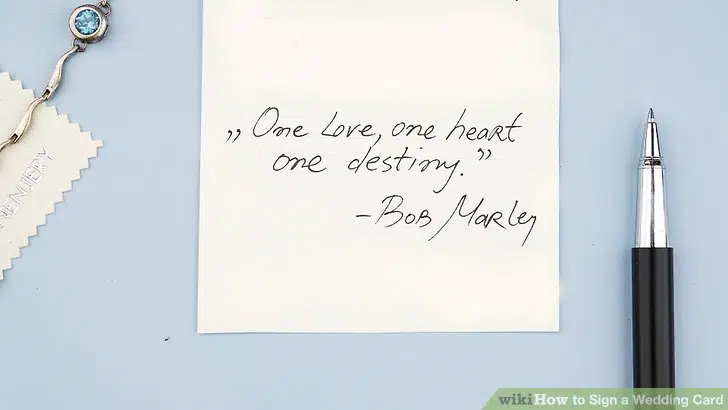 „One Love, one heart
one destiny.”
-Bob Marley
wikiHow to Sign a Wedding Card